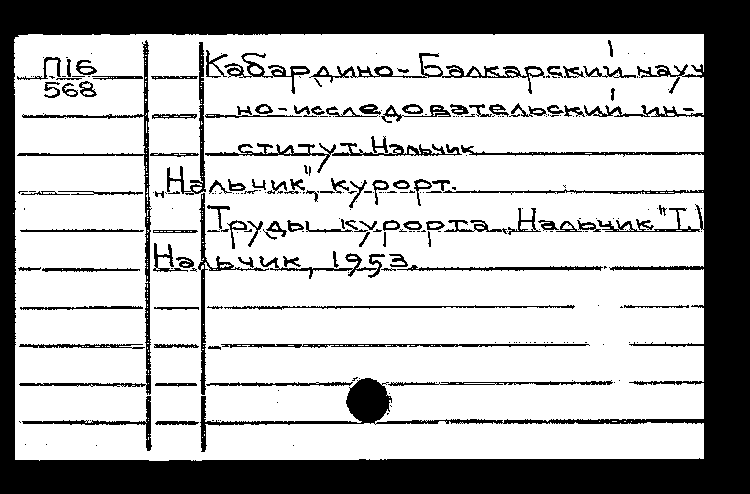 П16
568
Кабардино-Балкарский науч
но-исследовательский ин-
ститут. Нальчик
„Нальчик", курорт.
Труды курорта „Нальчик" Т.1
Нальчик, 1953.